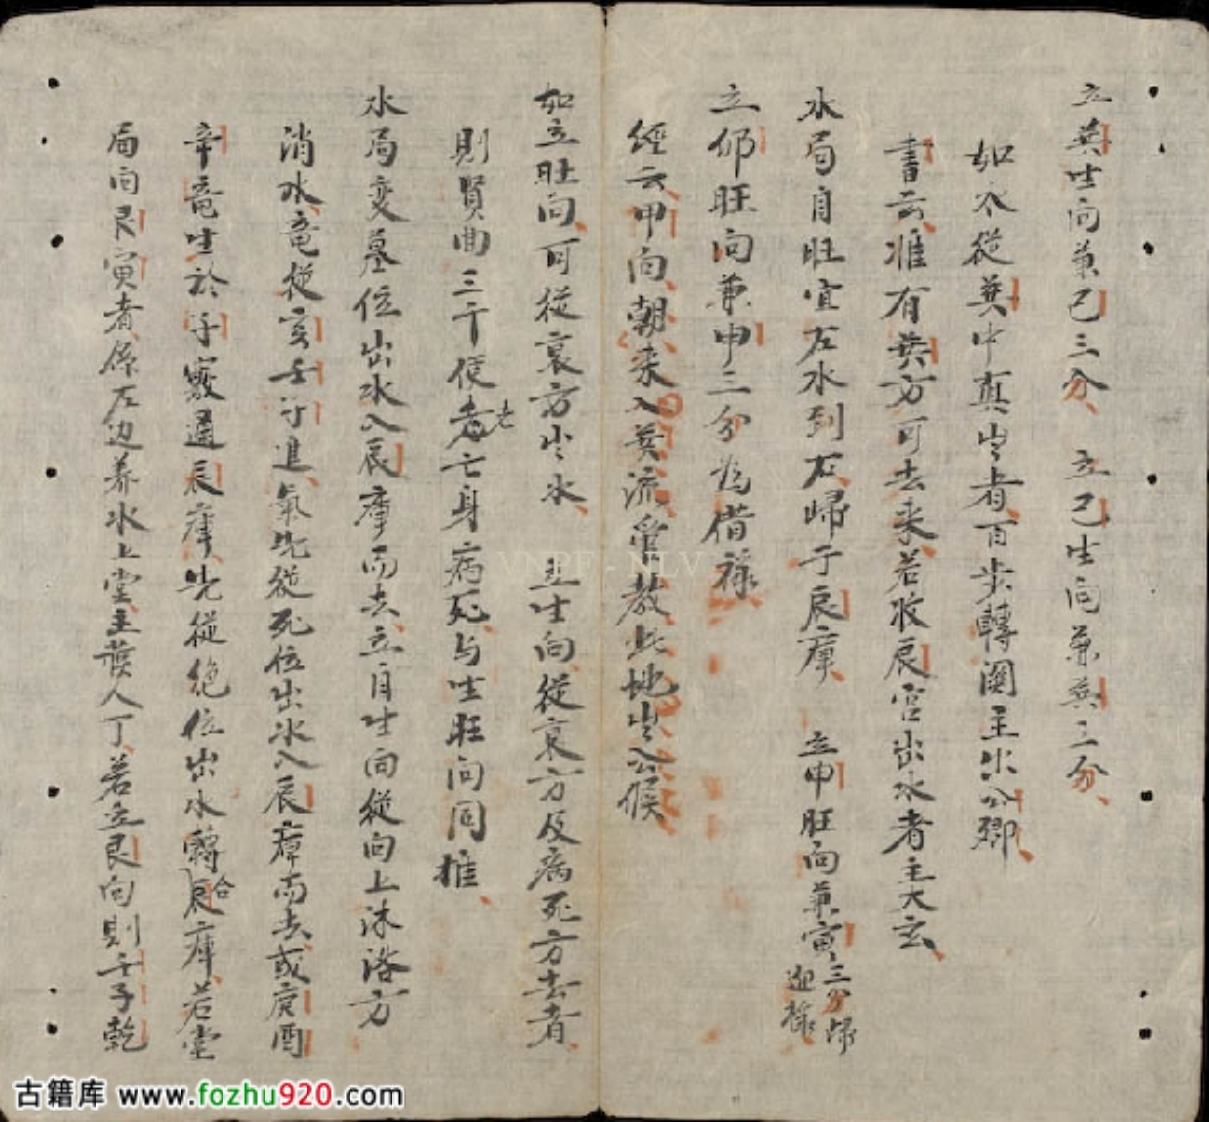 立巽生向兼己三分、立己生向兼巽三分、
如水從巽中真出者百步轉闌主出公卿、
書云、惟有巽方可去来、若收辰宮出水者主大玄、
水局自旺宜左水到右歸于辰庫、立甲旺向兼寅三分歸迎祿
立卯旺向兼甲三分為借祿、
經云、甲向朝来入巽流、管教此地出公侯
如立旺向、可從衰方出水、立生向、從衰方及病死方去者、
則賢曲三千便老亡身病死、与生旺向同推、
水局变墓位出水入辰庫而去、立自生向從向上沐浴方
消水、竜從亥壬行進氣、先從死位出水入辰庫而去、或庚酉
辛竜生於子、竅通辰庫、先從絶位出水轉辰合庫、若堂
局向艮寅者、係左边养水上堂主發人丁、若立艮向則壬子乾
VNPF - NLV
古籍库 www.fozhu920.com